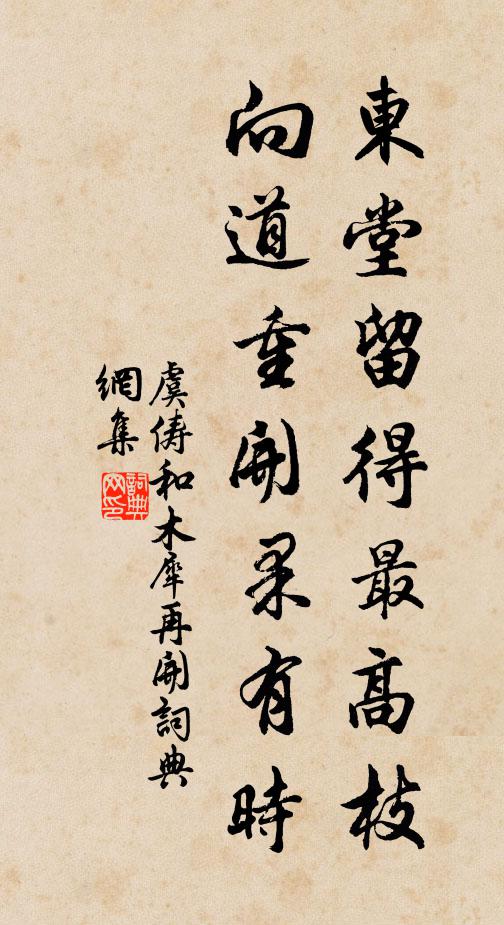 東堂留得最高枝
向道重開果有時
虞儔和木犀再開詞典
網集
詞典
网印